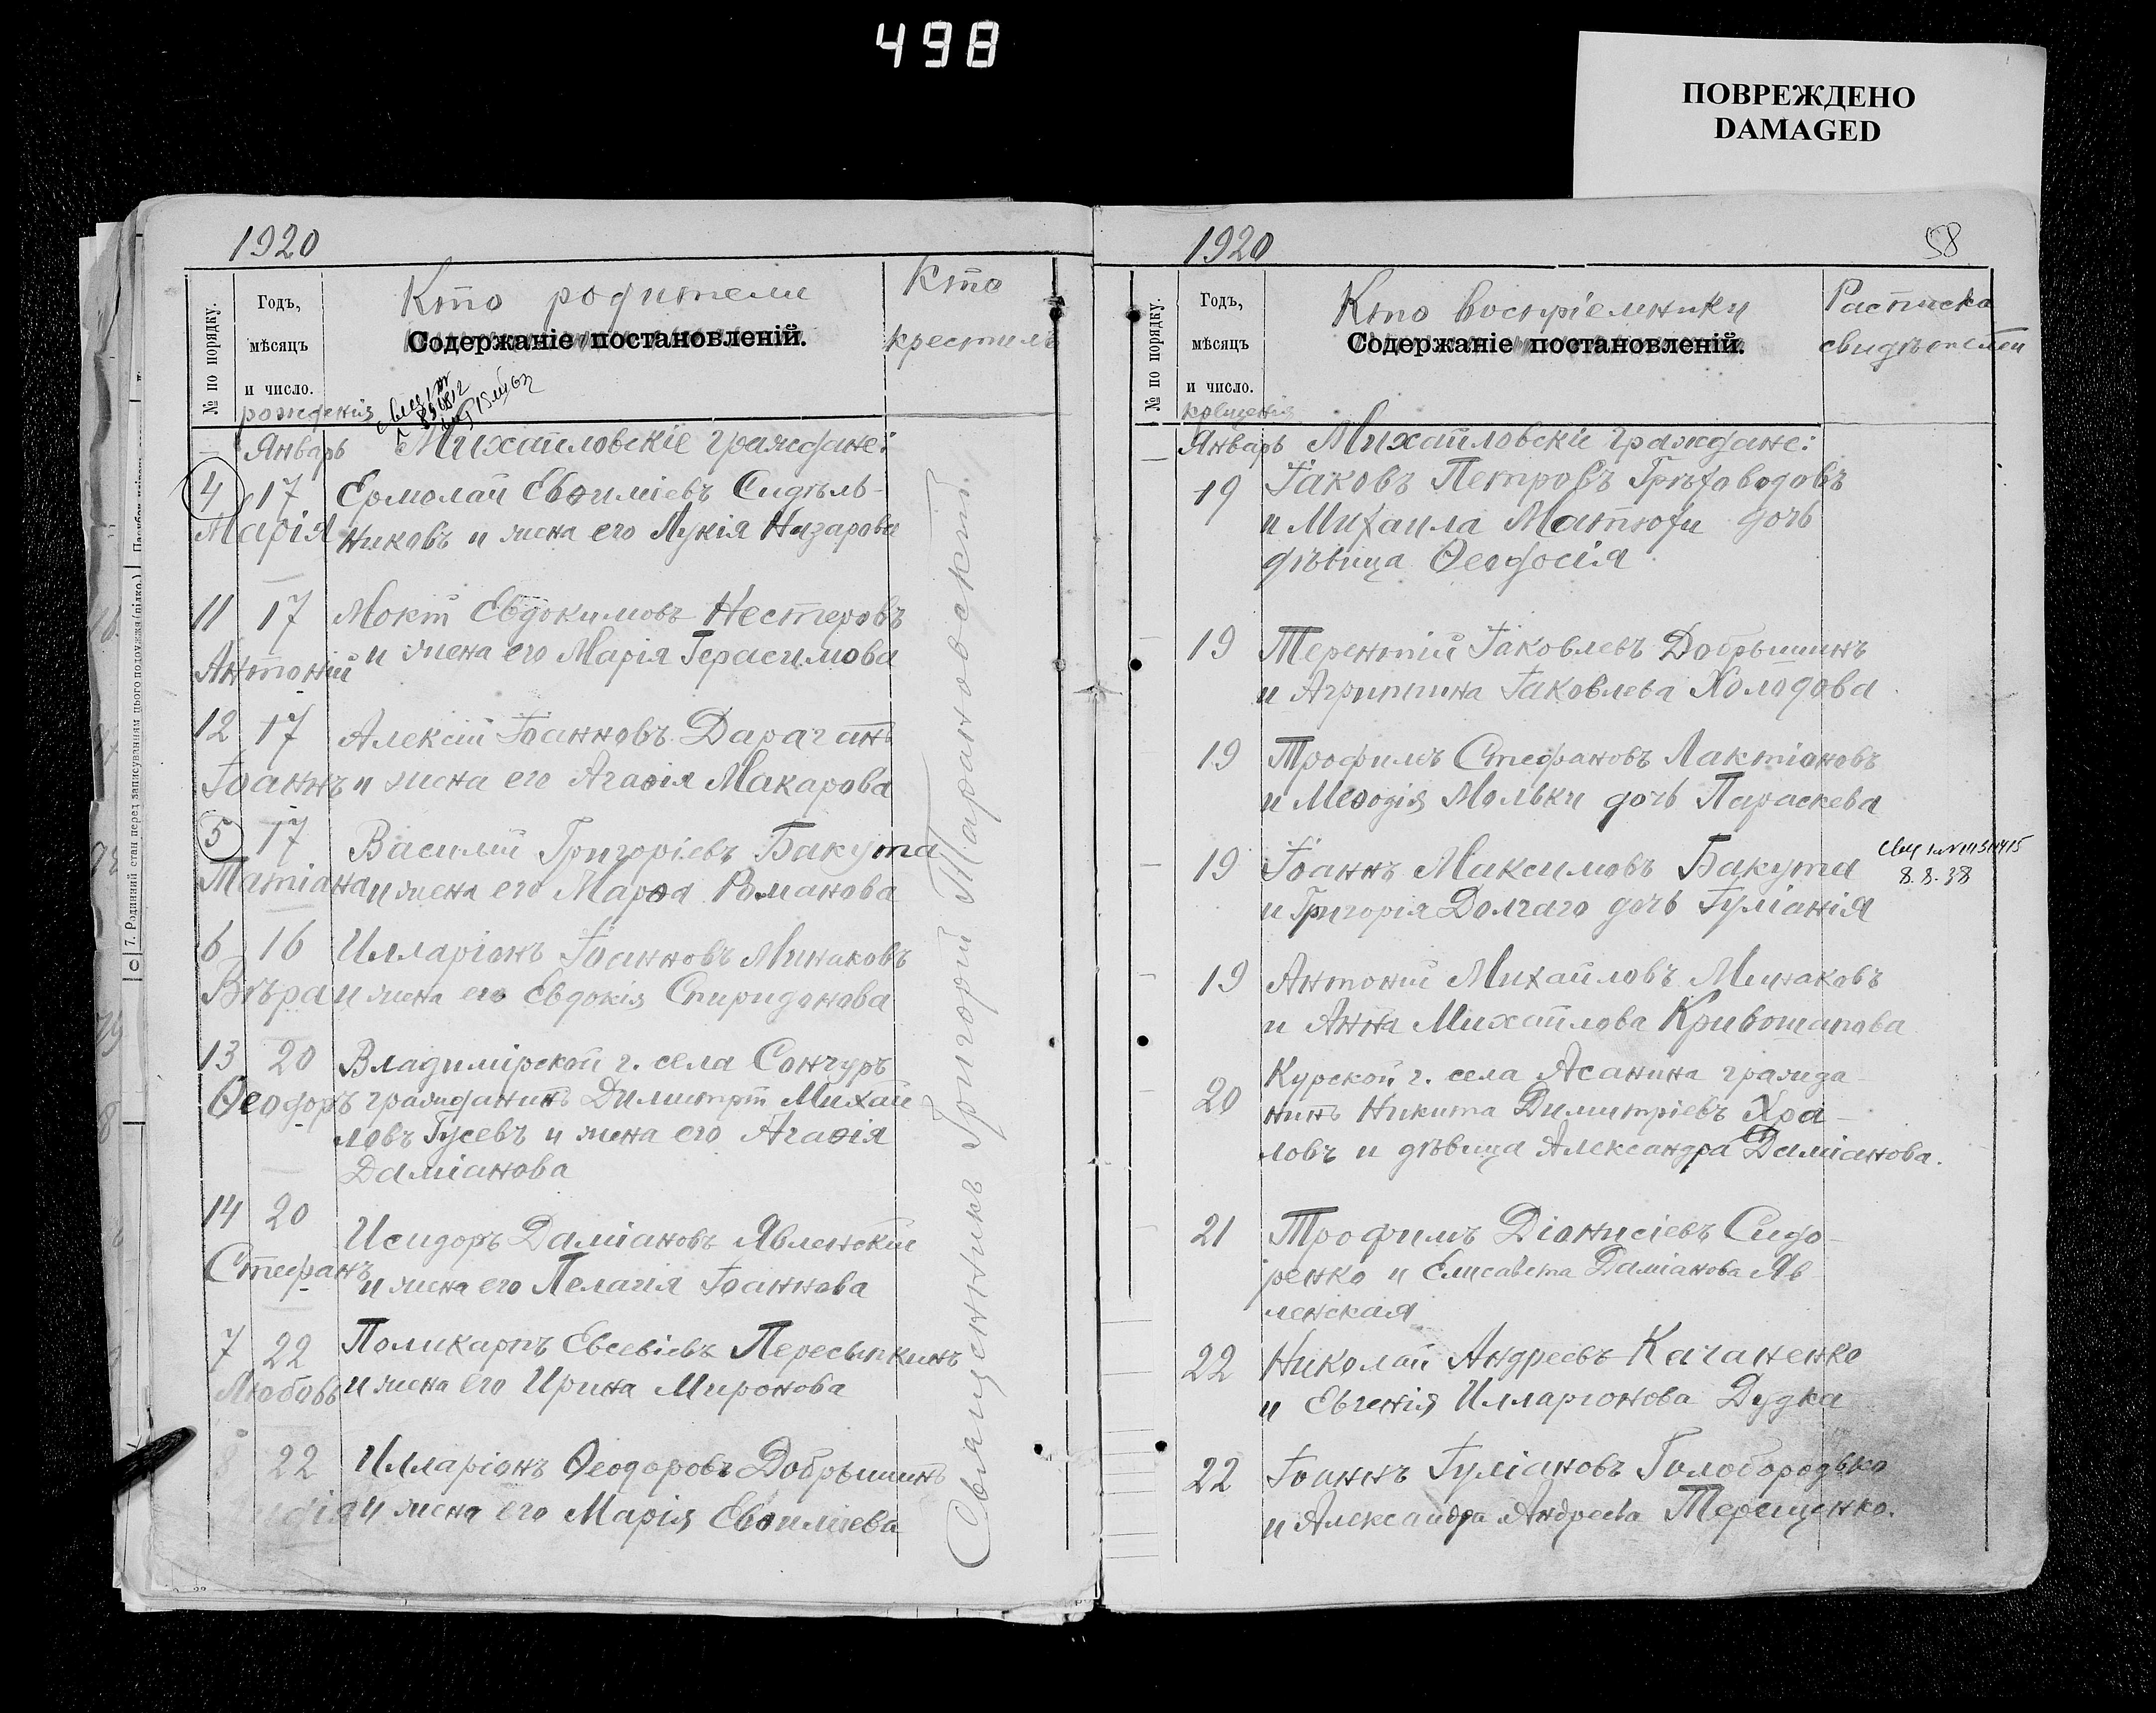 498
ПОВРЕЖДЕНО
DAMAGED
1920
№ по порядку.
Годъ,
мѣсяцъ
и число.
рожденія
Кто родители
Содержаніе постановленій.
Кто
крестилъ
Январь Михайловскіе граждане:
4 17 Ермолай Евѳиміевъ Сидѣль-
Марія никовъ и жена его Лукія Назарова
11 17 Мокій Евдокимовъ Нестеровъ
Антоній и жена его Марія Герасимова
12 17 Алексій Іоанновъ Дараганъ
Іоаннъ и жена его Агаѳія Макарова
5 17 Василій Григоріевъ Бакута
Татіана и жена его Марѳа Романова
6 16 Илларіонъ Іоанновъ Минаковъ
Вѣра и жена его Евдокія Спиридонова
13 20 Владимірской г. села Сончуръ
Ѳеодоръ гражданинъ Димитрій Михай-
ловъ Гусевъ и жена его Агаѳія
Даміанова
14 20 Исидоръ Даміановъ Явленскій
Стефанъ и жена его Пелагія Іоаннова
7 22 Поликарпъ Евсевіевъ Пересыпкинъ
Любовь и жена его Ирина Миронова
8 22 Илларіонъ Ѳеодоровъ Добрышинъ
и жена его Марія Евѳиміева
Священникъ Григорій Тарановскій.
7. Родинний стан перед записуванням цього подружжя (підкр.)
1920
58
№ по порядку.
Годъ,
мѣсяцъ
и число.
крещенія
Кто воспріемники
Содержаніе постановленій.
Расписка
свидѣтелей
Январь Михайловскіе граждане:
19 Іаковъ Петровъ Грѣховодовъ
и Михаила Матюхи дочь
дѣвица Ѳеодосія
19 Терентій Іаковлевъ Добрышинъ
и Агриппина Іаковлева Холодова
19 Трофимъ Стефановъ Лактіоновъ
и Меѳодія Мольки дочь Параскева
19 Іоаннъ Максимовъ Бакута
8.8.38
и Григорія Долгаго дочь Іуліанія
19 Антоній Михайловъ Минаковъ
и Анна Михайлова Кривошапова
Курской г. села Асанина гражда-
20 нинъ Никита Димитріевъ Хра-
ловъ и дѣвица Александра Даміанова.
21 Трофимъ Діонисіевъ Сидо-
ренко и Елисавета Даміанова Яв-
ленская
22 Николай Андреевъ Качаненко
и Евгенія Илларіонова Дудка
22 Іоаннъ Іуліановъ Голобородько
и Александра Андреева Терещенко.